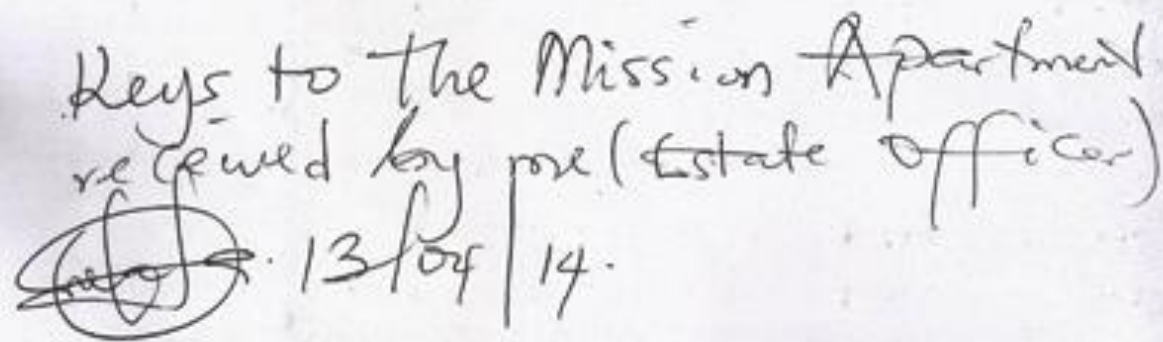 Keys to the Mission Apartment
received by me (Estate Officer)
13/04/14.